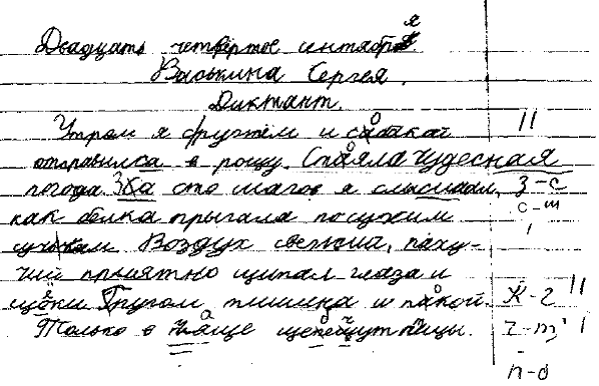 Двадцать четвёртое сентября.
Васькина Сергея.
Диктант.
Утром я с другтём и сабакай
отправился в рощу. Стаяла чудесная
погода. За сто шагов я слысшал,
как белка прыгала посухим
сучькам. Воздух свежий, паху-
чий приятно щипал глаза и
щёки. Кругом тишина и пакой.
Только в чаще щебечут птицы.
||
З-с
с-ш
К-г ||
г-т |
п-б